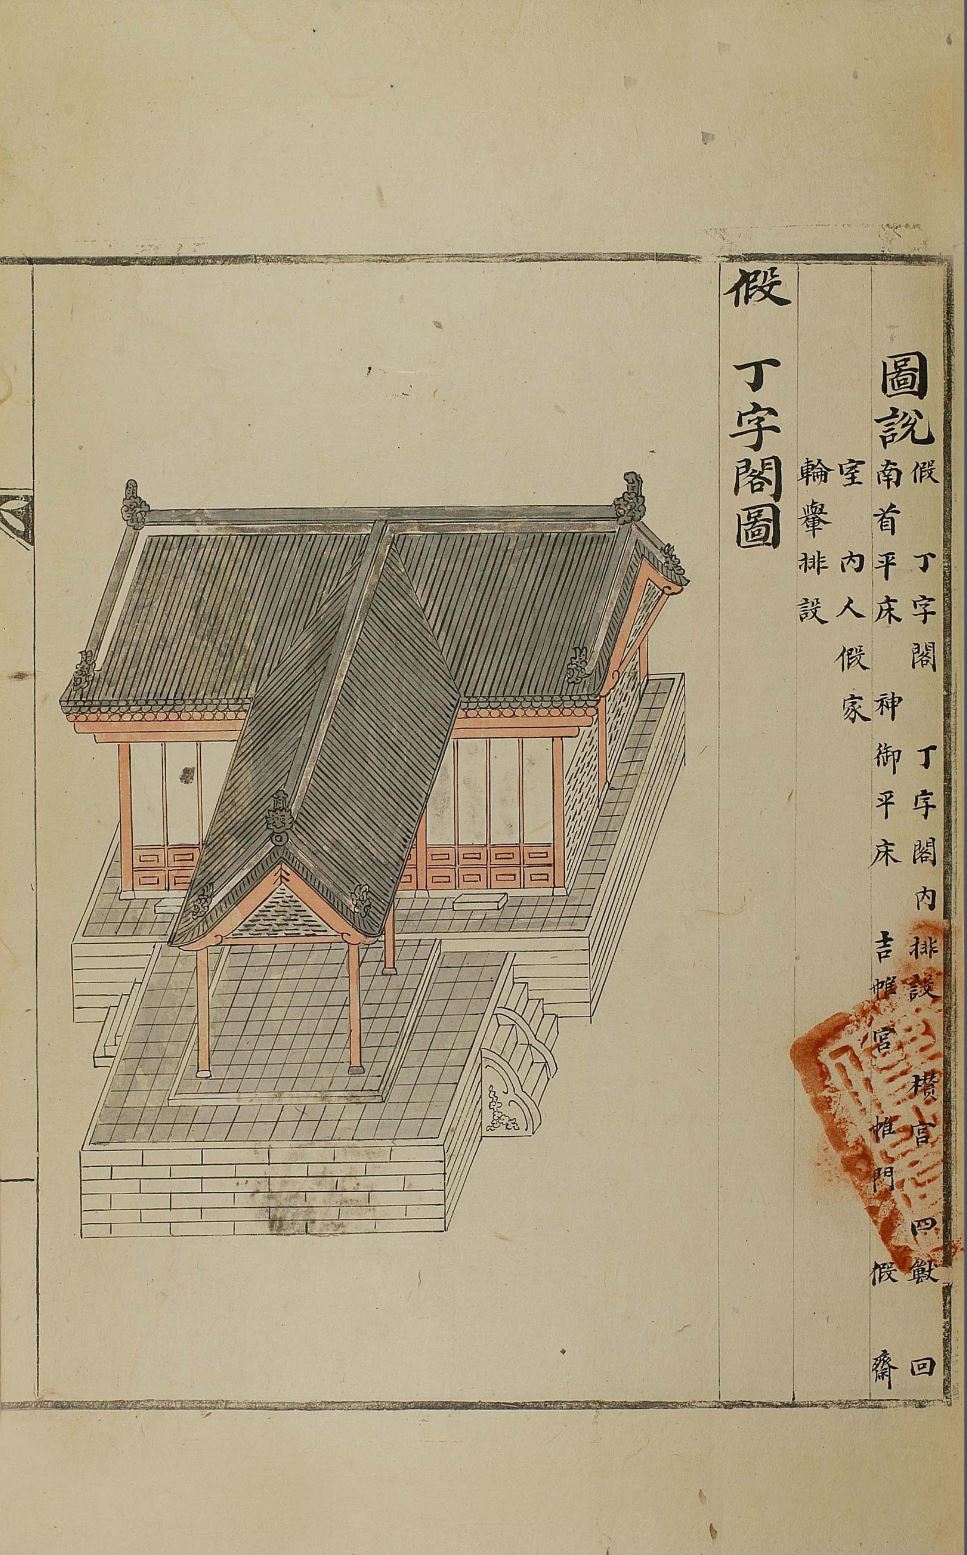 圖說
假 丁字閣 丁字閣內排設 欑宮 四獸 回
南首平床 神御平床 吉帷宮 帷門 假 齋
室 內人假家
輪轝排設
假 丁字閣圖